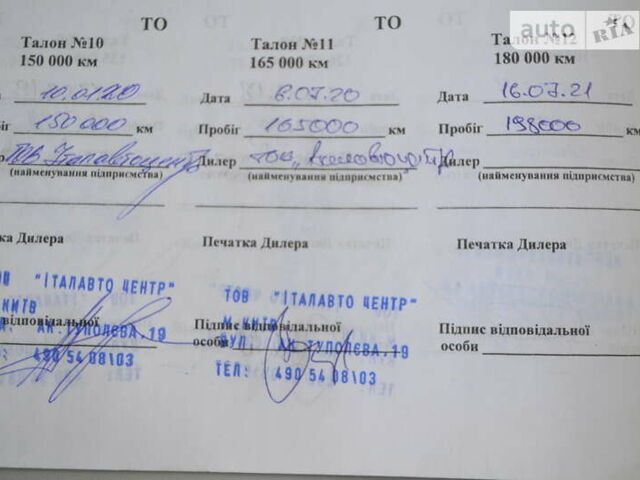 ТО
Талон №10
150 000 км
10.01.20
150000 км
ТОВ Італавтоцентр
(найменування підприємства)
Печатка Дилера
ТОВ "ІТАЛАВТО ЦЕНТР"
М.КИЇВ
ВУЛ. АК.ТУПОЛЄВА,19
відповідальної
ТЕЛ: 490 54 08\03
ТО
Талон №11
165 000 км
Дата 6.07.20
Пробіг 165000 км
Дилер ТОВ „Італавтоцентр
(найменування підприємства)
Печатка Дилера
ТОВ "ІТАЛАВТО ЦЕНТР"
М.КИЇВ
Підпис відповідальної
особи
ВУЛ. АК.ТУПОЛЄВА,19
ТЕЛ: 490 54 08\03
ТО
Талон №12
180 000 км
Дата 16.07.21
Пробіг 198000 км
Дилер
(найменування підприємства)
Печатка Дилера
Підпис відповідальної
особи
auto RIA